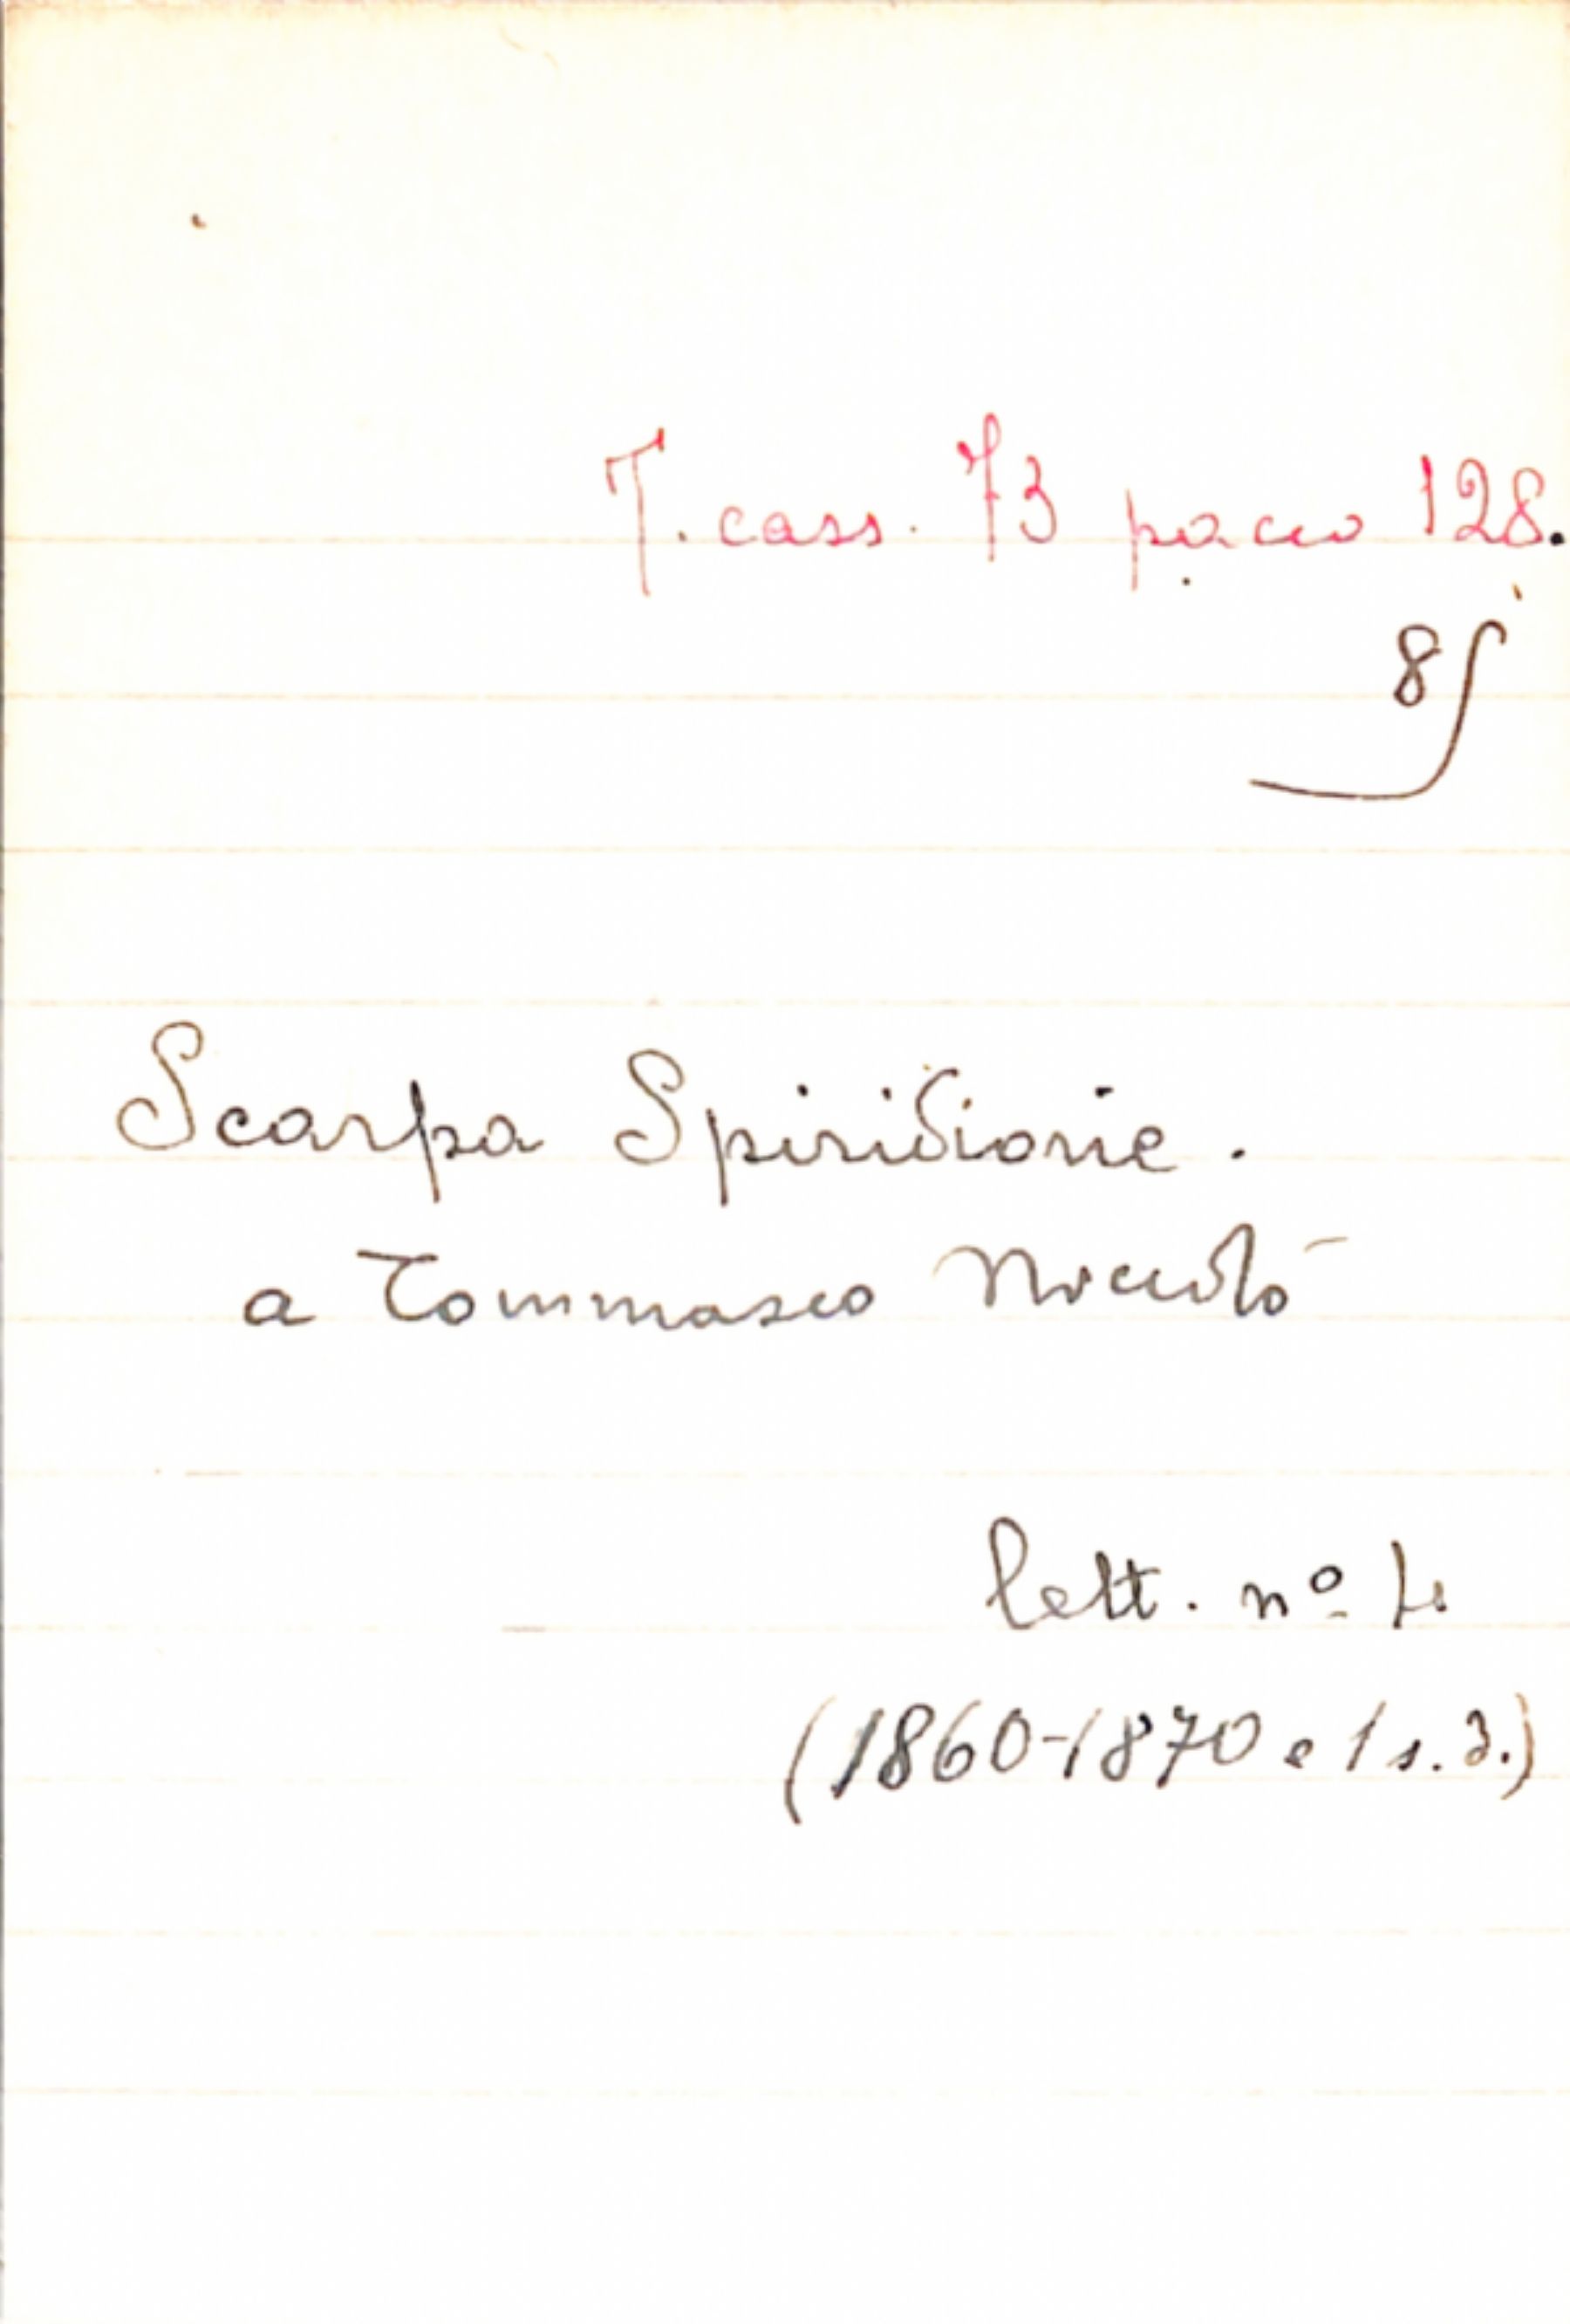 T. cass. 73 pacco 128.
8
Scarpa Spiridione.
a Tommaseo Niccolò
lett. nº 4
(1860-1870 e 1 s. d.)